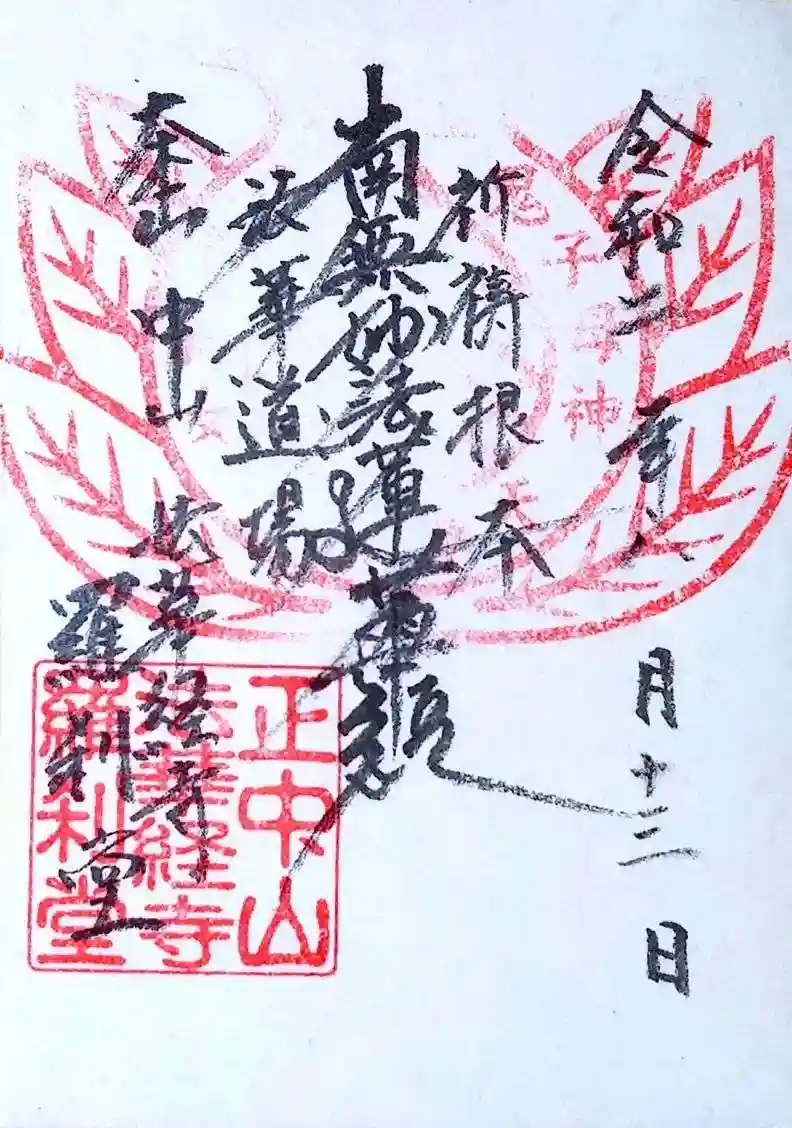 令和二年六月十三日
鬼子母神
祈祷根本
南無妙法蓮華経
法華道場
奉 中山 法華経寺
羅刹堂
正中山
法華経寺
羅刹堂